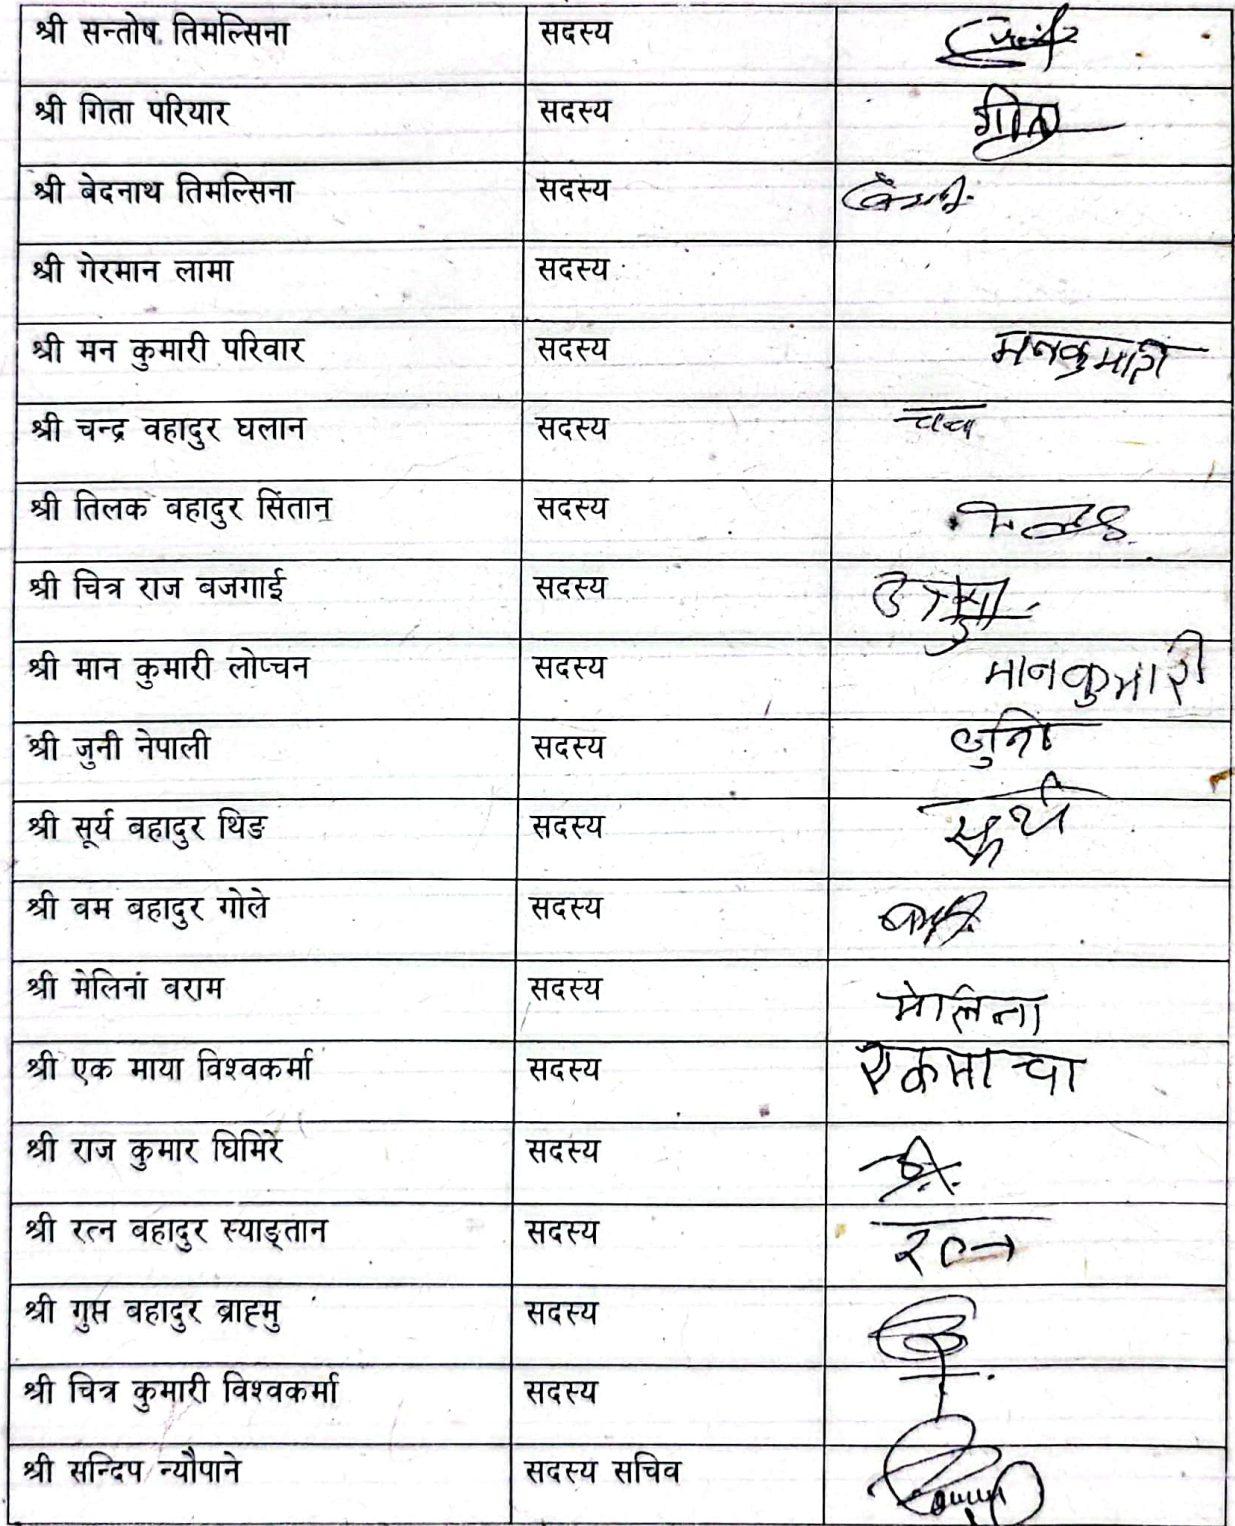 श्री सन्तोष तिमल्सिना सदस्य
श्री गिता परियार सदस्य गीता
श्री बेदनाथ तिमल्सिना सदस्य
श्री गेरमान लामा सदस्य
श्री मन कुमारी परिवार सदस्य मनकुमारी
श्री चन्द्र वहादुर घलान सदस्य
श्री तिलक बहादुर सिंतान सदस्य
श्री चित्र राज वजगाई सदस्य
श्री मान कुमारी लोप्चन सदस्य मानकुमारी
श्री जुनी नेपाली सदस्य जुनि
श्री सूर्य बहादुर थिङ सदस्य सूर्य
श्री वम बहादुर गोले सदस्य
श्री मेलिना बराम सदस्य मेलिना
श्री एक माया विश्वकर्मा सदस्य एकमाया
श्री राज कुमार घिमिरे सदस्य
श्री रत्न वहादुर स्याङ्तान सदस्य रत्न
श्री गुप्त बहादुर ब्राह्मु सदस्य
श्री चित्र कुमारी विश्वकर्मा सदस्य
श्री सन्दिप न्यौपाने सदस्य सचिव